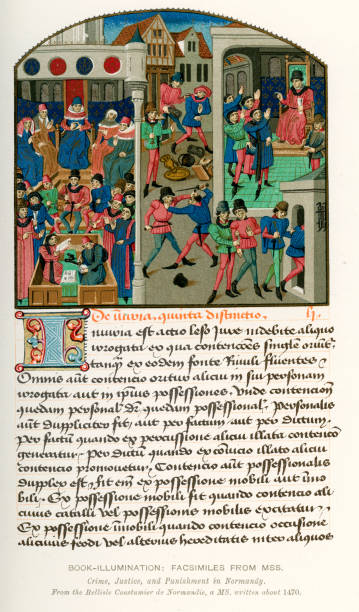 De iniuria, quinta distinctio. ij.
Iniuria est actio leso Iure indebite aliquo
irrogata ex qua contenciones singule oriunt
tanq̄ȝ ex eodem fonte Riuuli fluentes
Omnis aūt contencio oritur alicui in sui personam
irrogata aut in ipsius possessiones. Unde contencionū
quedam personal' Et quedam possessional'. Personalis
aūt dupliciter fit. aut per factum. aut per dictum.
Per factū quando ex percussione alicui illata contencō
generatur. Per dictū quando ex cōuicio illato alicui
contencio promouetur. Contencio aūt possessionalis
duplex est. fit enī ex possessione mobili aut īmo
bili. Ex possessione mobili fit quando contencio ali
cuius catalli vel possessionis mobilis excitatur.
Ex possessione īmobili quando contencio occasione
alicuius feodi vel alterius hereditatis inter aliquos
BOOK-ILLUMINATION: FACSIMILES FROM MSS.
Crime, Justice, and Punishment in Normandy.
From the Bellisle Coustumier de Normandie, a MS. written about 1470.